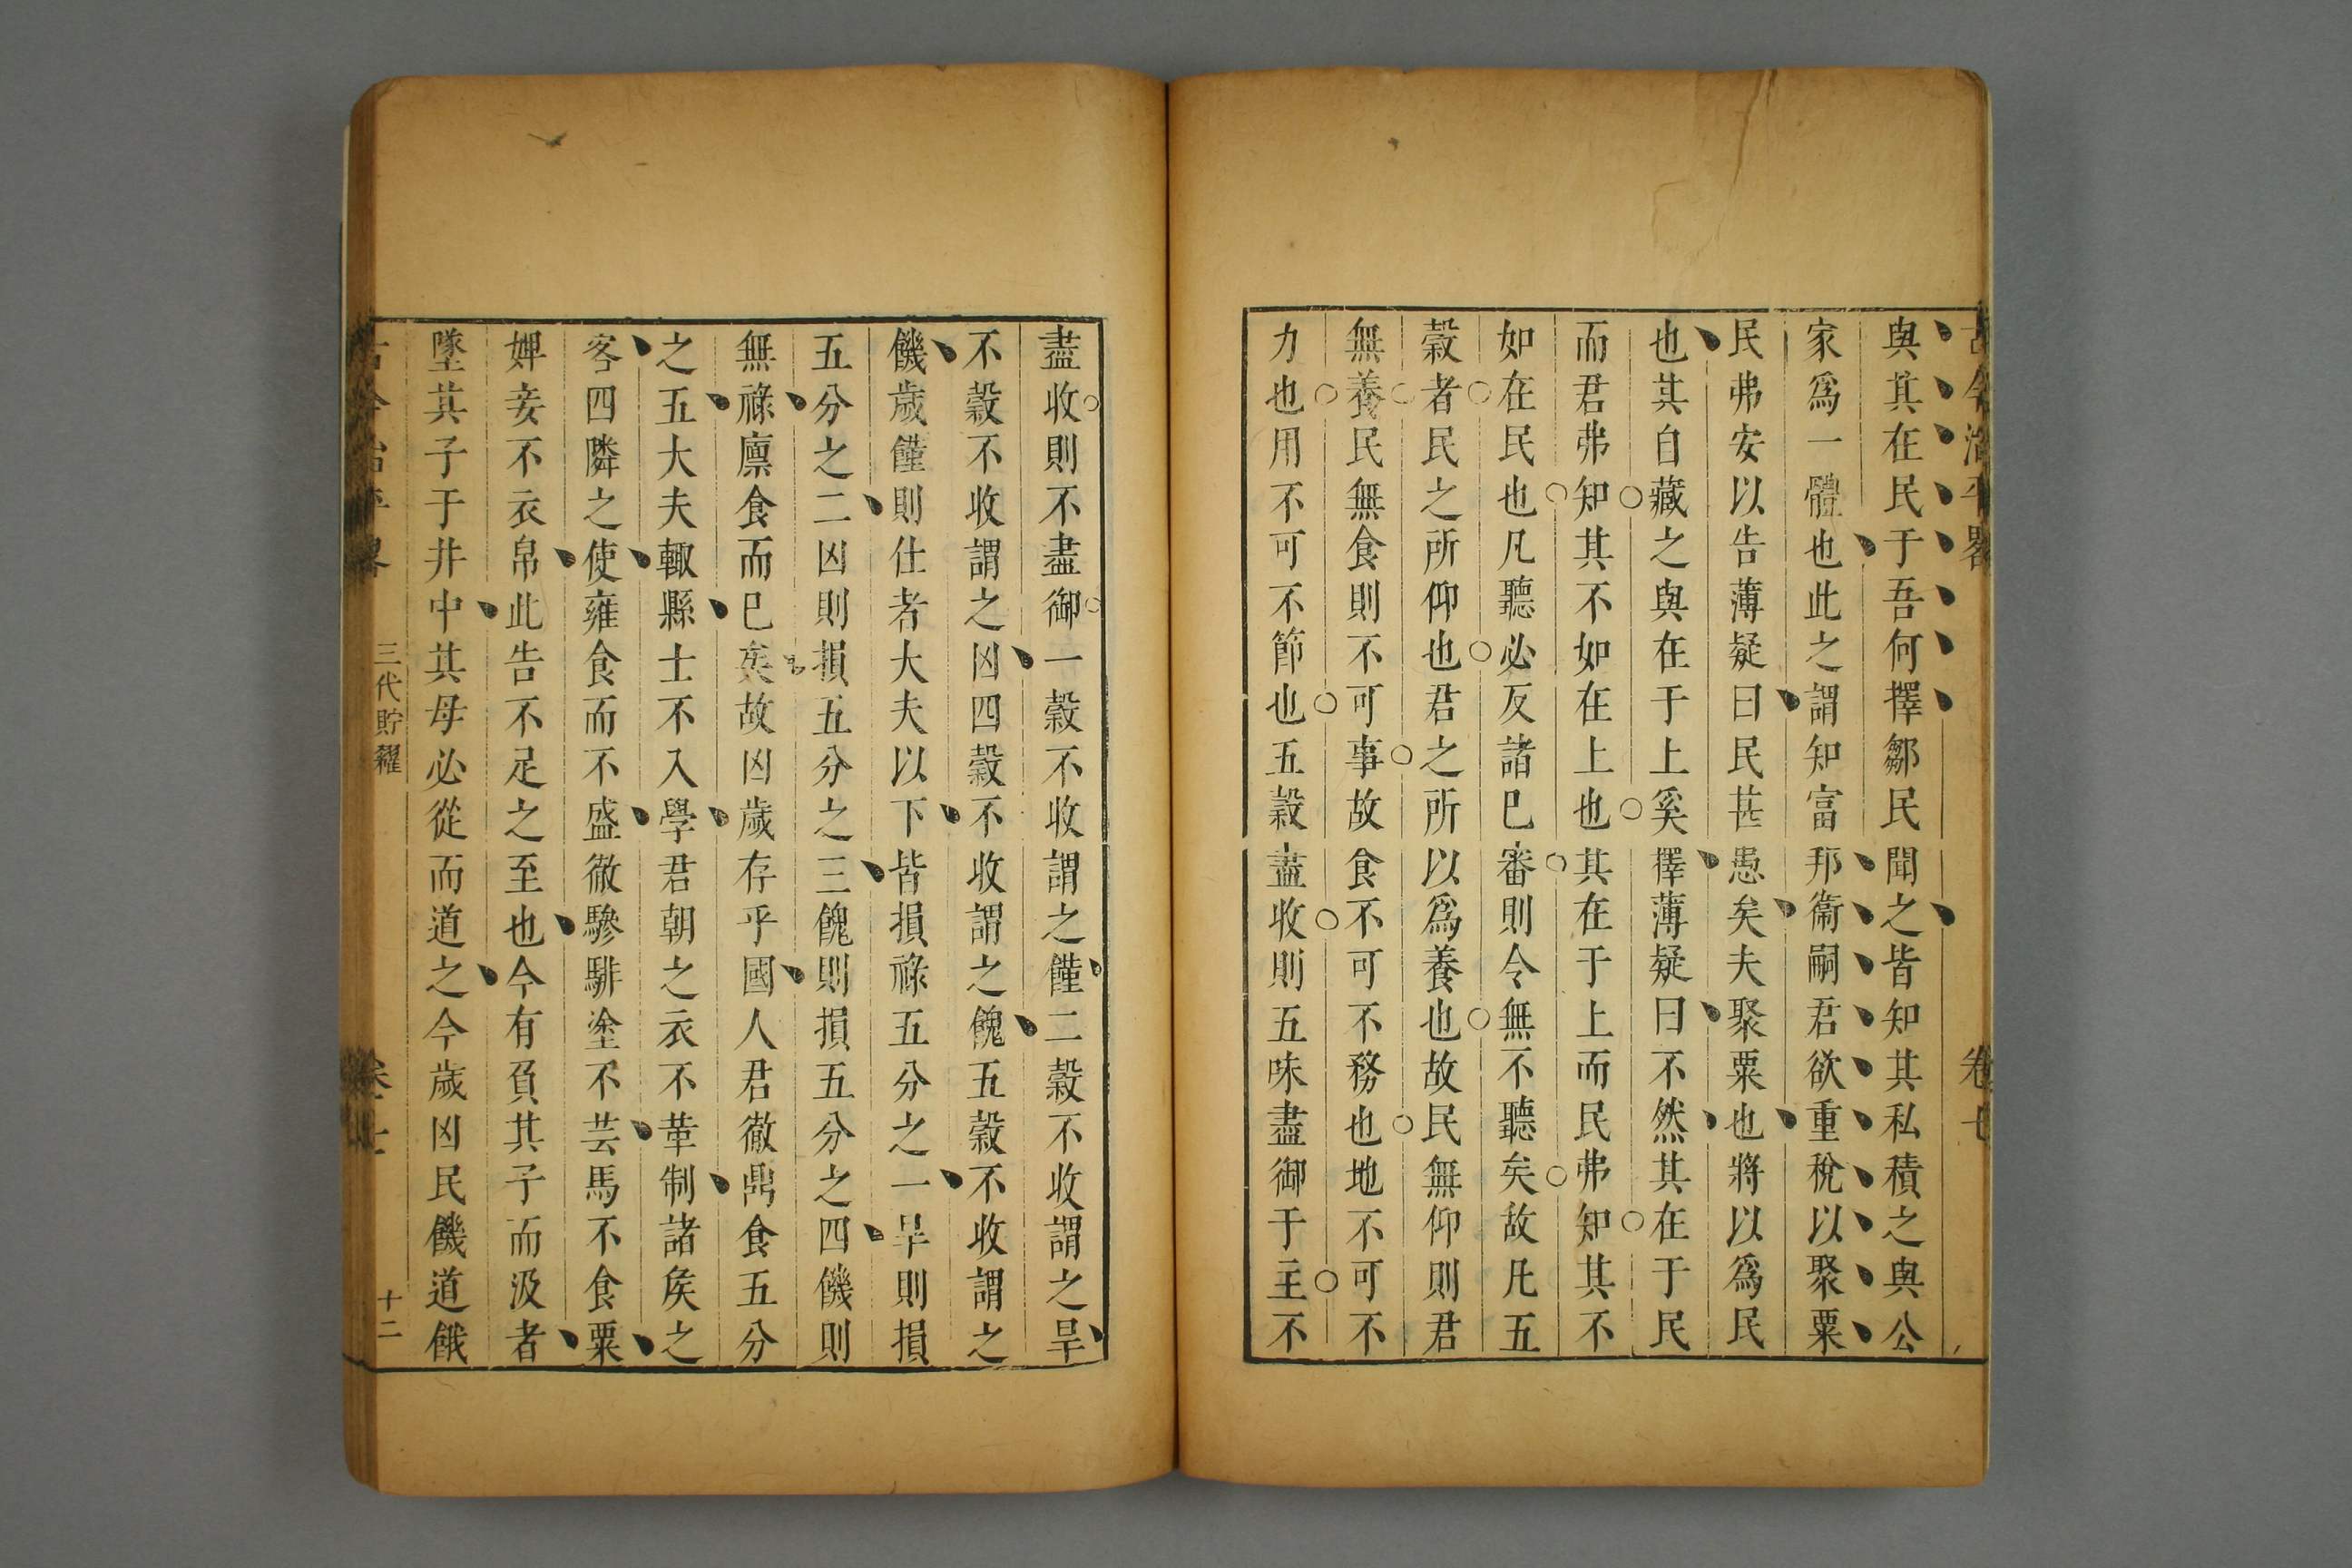 古今治平畧
卷七
與其在民于吾何擇鄒民聞之皆知其私積之與公
家爲一體也此之謂知富邦衞嗣君欲重稅以聚粟
民弗安以告薄疑曰民甚愚矣夫聚粟也將以爲民
也其自藏之與在于上奚擇薄疑曰不然其在于民
而君弗知其不如在上也其在于上而民弗知其不
如在民也凡聽必反諸已審則令無不聽矣故凡五
穀者民之所仰也君之所以爲養也故民無仰則君
無養民無食則不可事故食不可不務也地不可不
力也用不可不節也五穀盡收則五味盡御于主不
盡收則不盡御一穀不收謂之饉二穀不收謂之旱
不穀不收謂之凶四穀不收謂之餽五穀不收謂之
饑歲饉則仕者大夫以下皆損祿五分之一旱則損
五分之二凶則損五分之三餽則損五分之四饑則
無祿廩食而已矣故凶歲存乎國人君徹鼎食五分
之五大夫輙縣士不入學君朝之衣不革制諸矦之
客四隣之使雍食而不盛徹驂騑塗不芸馬不食粟
婢妾不衣帛此告不足之至也今有負其子而汲者
墜其子于井中其母必從而道之今歲凶民饑道餓
古今治平畧
三代貯糴
卷七
十二